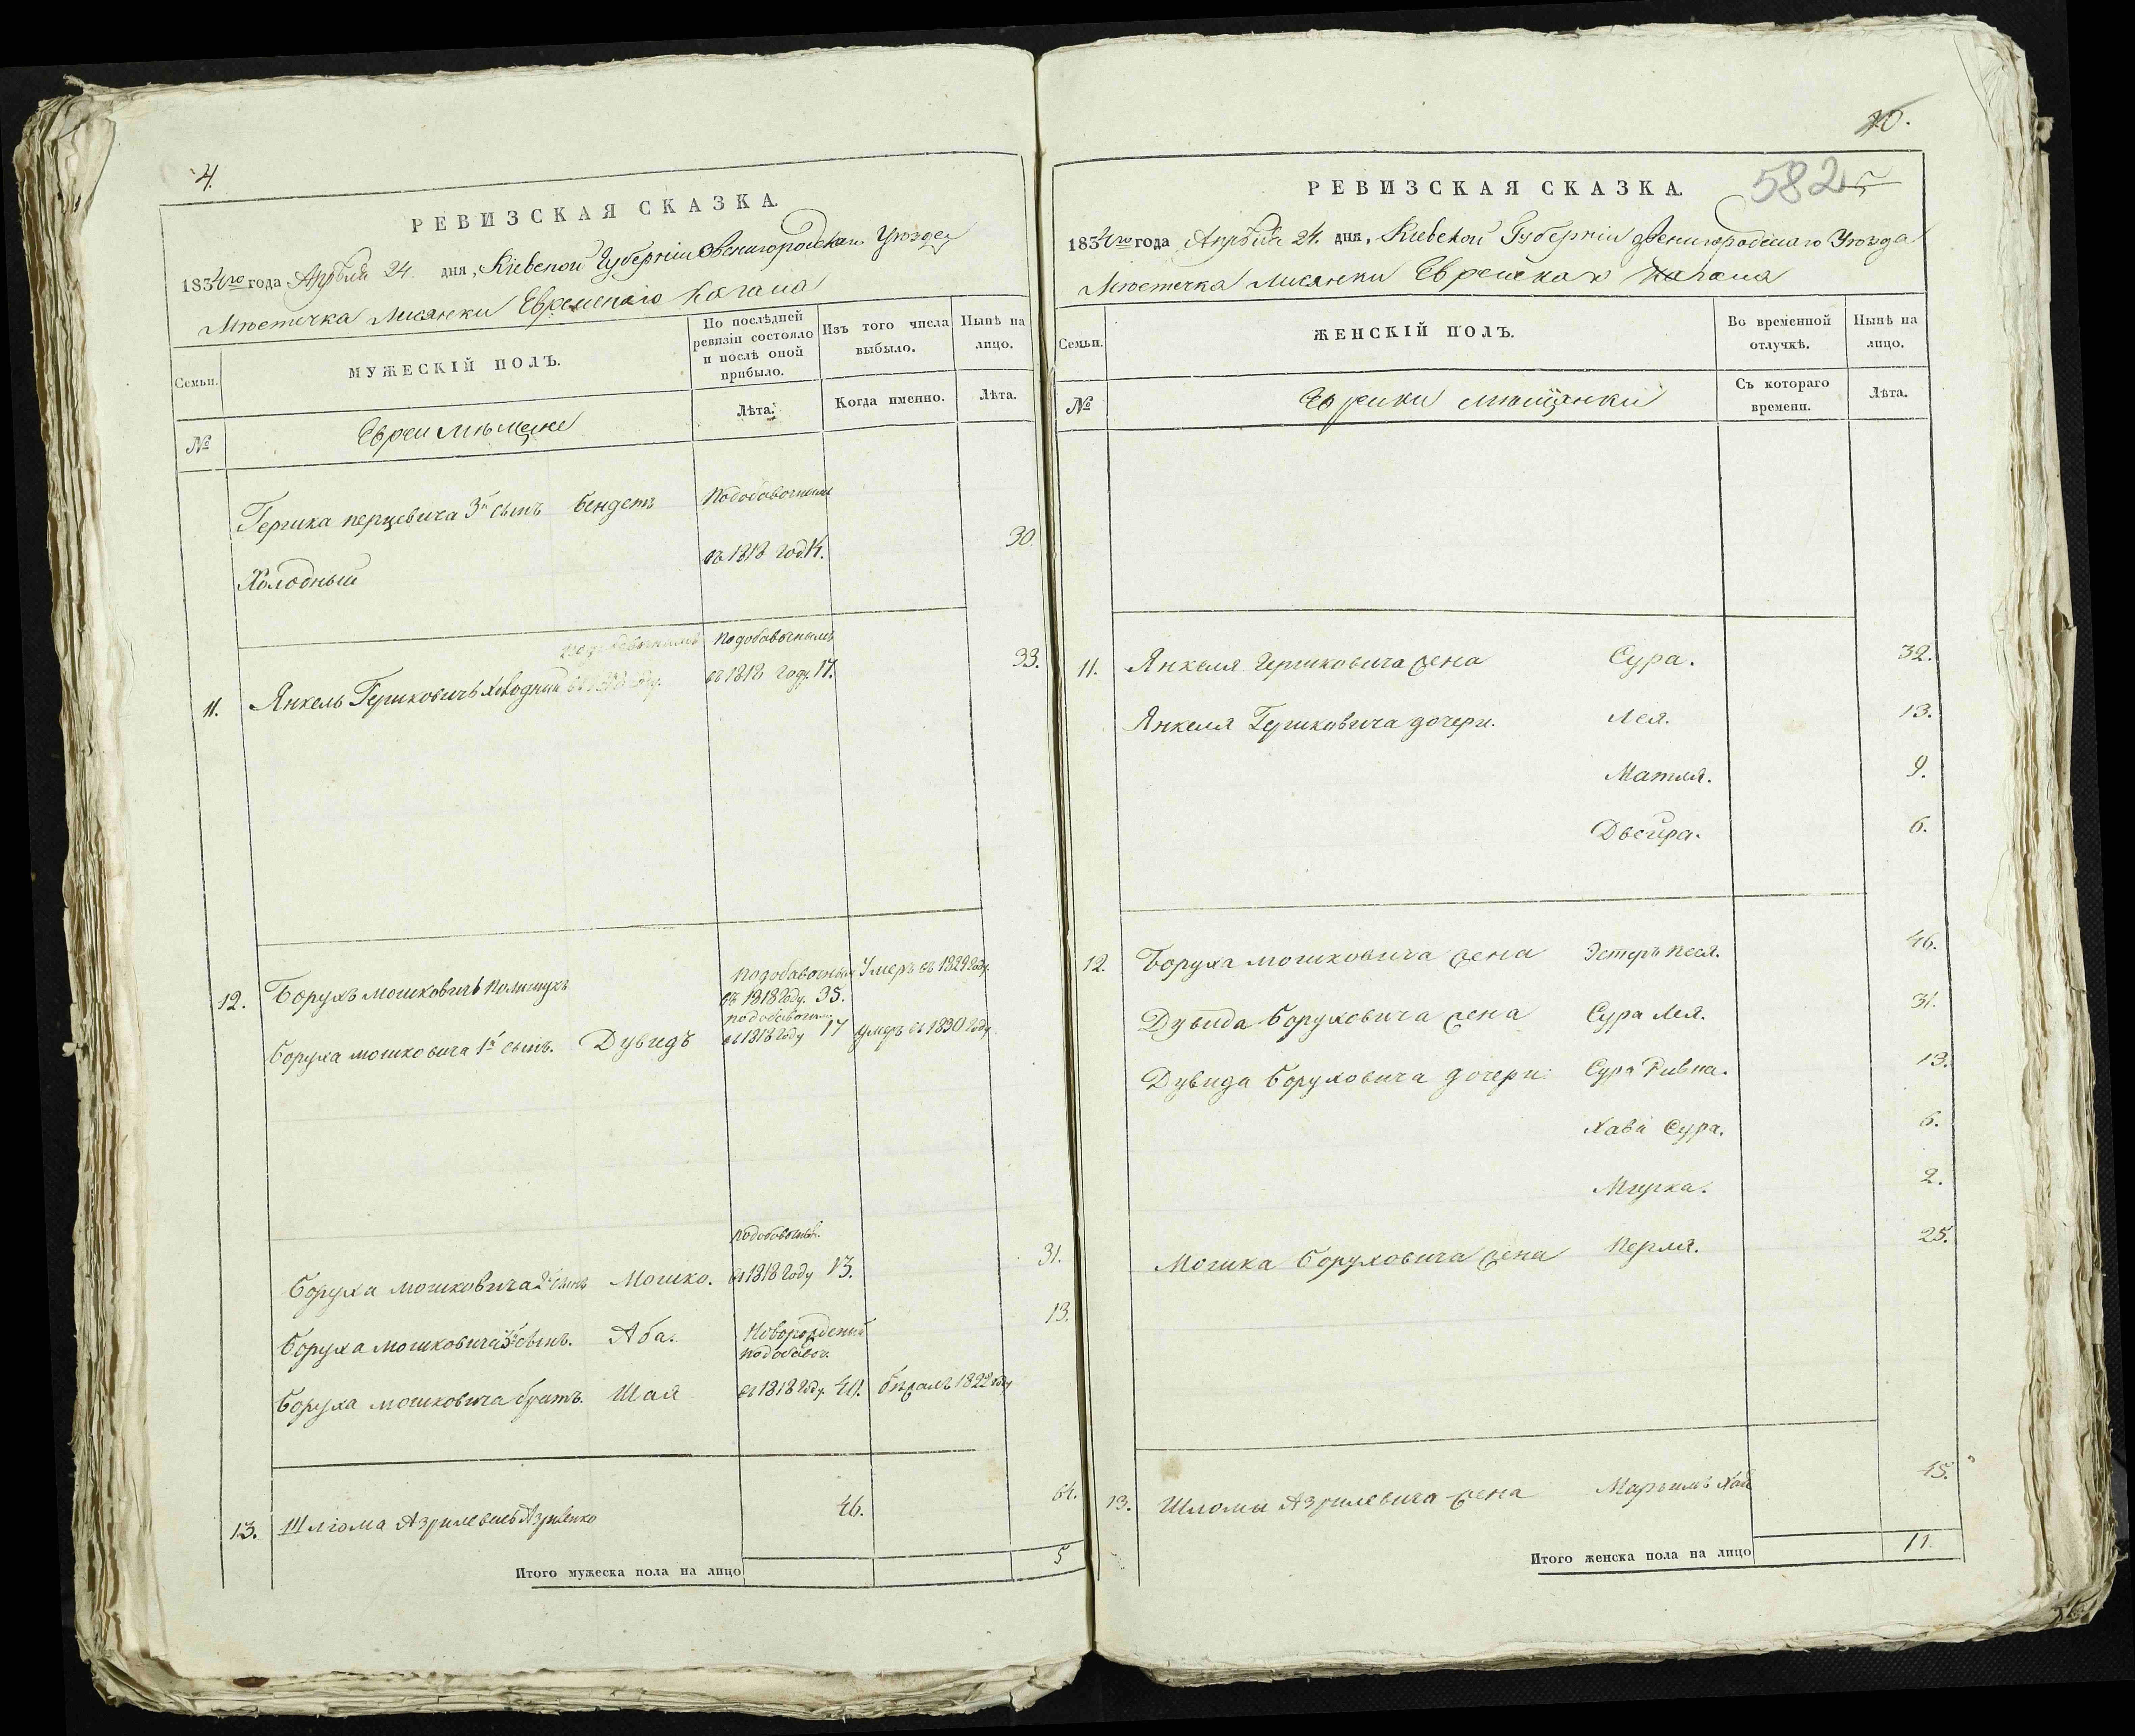 4.
РЕВИЗСКАЯ СКАЗКА.
1834го года Апрѣля 24. дня, Кіевской Губерніи Звенигородскаго Уѣзда
Мѣстечка Лисянки Еврейскаго Кагала
Семьи.
МУЖЕСКІЙ ПОЛЪ.
По послѣдней ревизіи состояло и послѣ оной прибыло.
Изъ того числа выбыло.
Нынѣ на лицо.
№
Евреи мѣщане
Лѣта.
Когда именно.
Лѣта.
Гершка перцевича 3й сынъ бендетъ
Подобавочнымъ
въ 1818 год. 14.
30.
Холодный
11. Янкель Гершковичъ Холодный
подобавочнымъ
въ 1818 году. 17.
33.
12. Борухъ мошковичъ Полищукъ
подобавочнымъ
въ 1818 году. 35.
Умеръ въ 1829 году.
Боруха мошковича 1й сынъ. Дувидъ
подобавочным
въ 1818 году 17
умеръ въ 1830 году.
Боруха мошковича 2й сынъ Мошко.
подобавочнымъ.
въ 1818 году 13.
31.
Боруха мошковича 3й сынъ. Аба.
Новорожденный
13.
Боруха мошковича братъ. Шая
подобавоч.
въ 1818 году. 40.
бѣжалъ 1822 году
13. Шліома Азрилевичъ Азриленко
46.
64.
Итого мужеска пола на лицо
5
20.
582
РЕВИЗСКАЯ СКАЗКА.
1834го года Апрѣля 24. дня, Кіевской Губерніи Звенигородскаго Уѣзда
Мѣстечка Лисянки Еврейскаго Кагала
Семьи.
ЖЕНСКІЙ ПОЛЪ.
Во временной отлучкѣ.
Нынѣ на лицо.
№
Еврейки мѣщанки
Съ котораго времени.
Лѣта.
11. Янкеля Гершковича жена Сура. 32.
Янкеля Гершковича дочери. Лея. 13.
Матля. 9.
Двейра. 6.
12. Боруха мошковича жена Эстеръ Песя. 46.
Дувида Боруховича жена Сура Лея. 31.
Дувида Боруховича дочери: Сура Ривка. 13.
Хава Сура. 6.
Мирка. 2.
Мошка Боруховича жена Перля. 25.
13. Шломы Азрилевича жена Марьимъ Хая 45.
Итого женска пола на лицо
11.